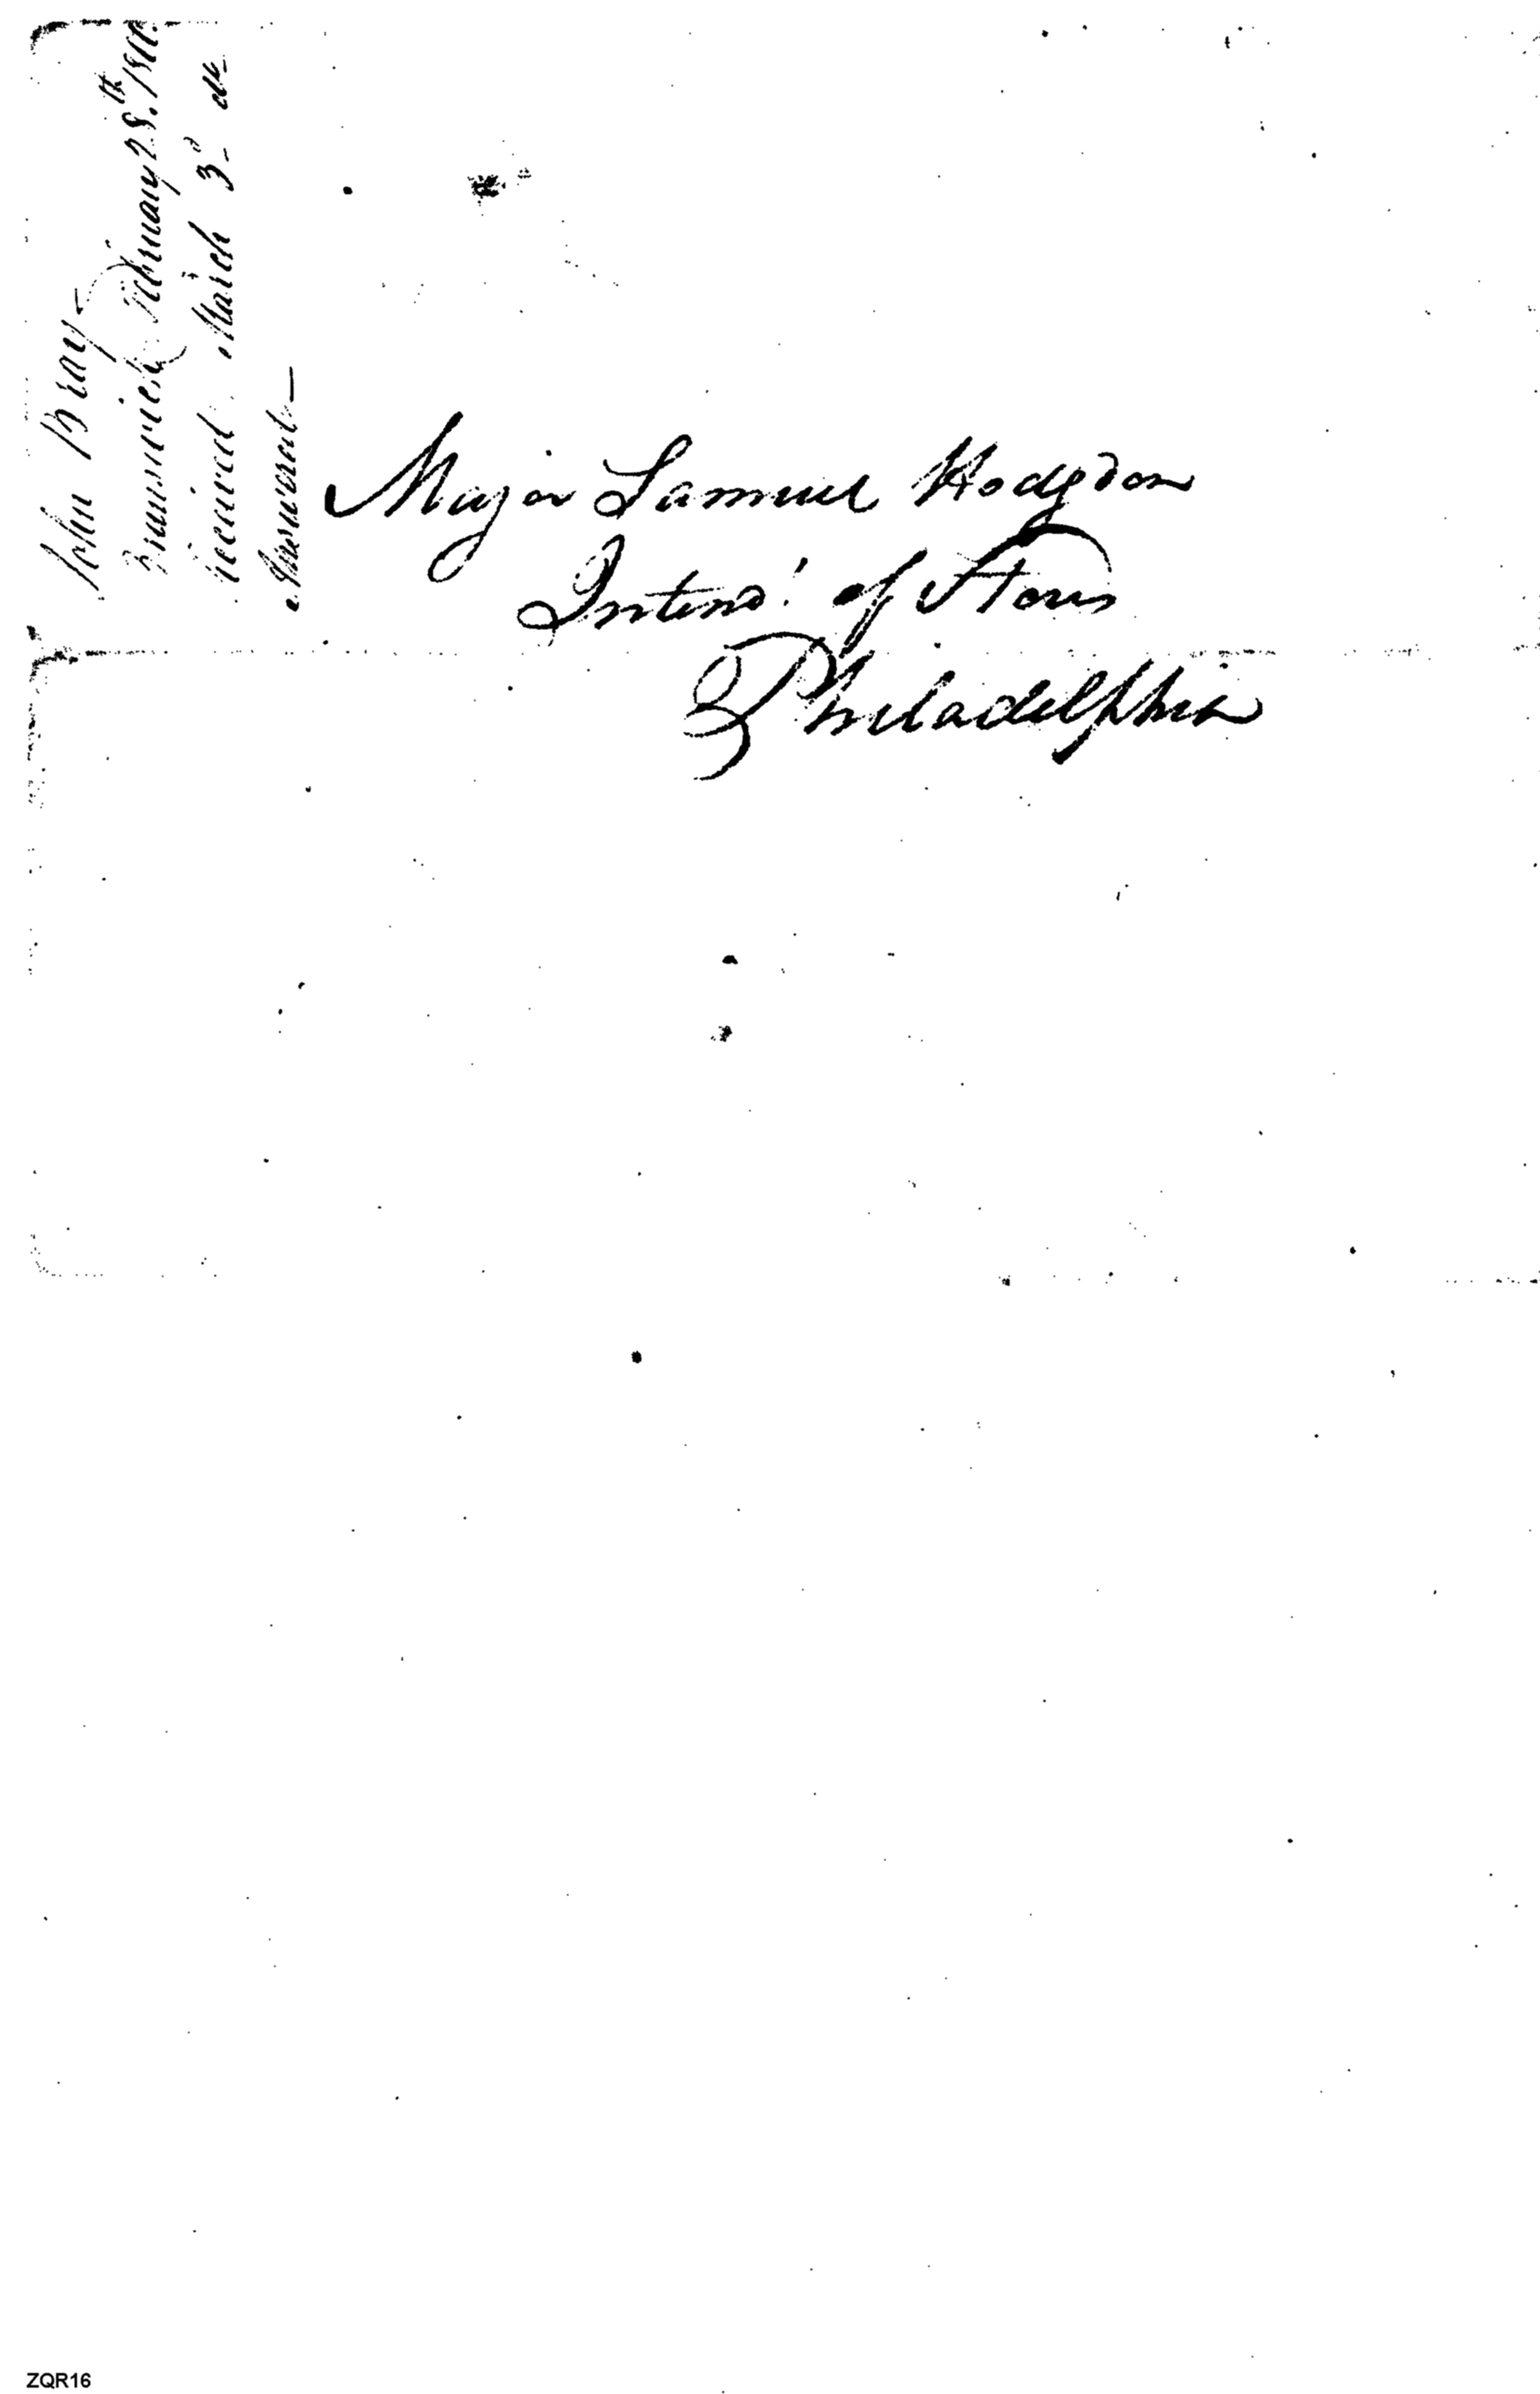 John Bray
Brunswick February 28.th 1800.
received March 3d do
Answered
Major Samuel Hodgdon
Intend.t of Stores
Philadelphia
ZQR16